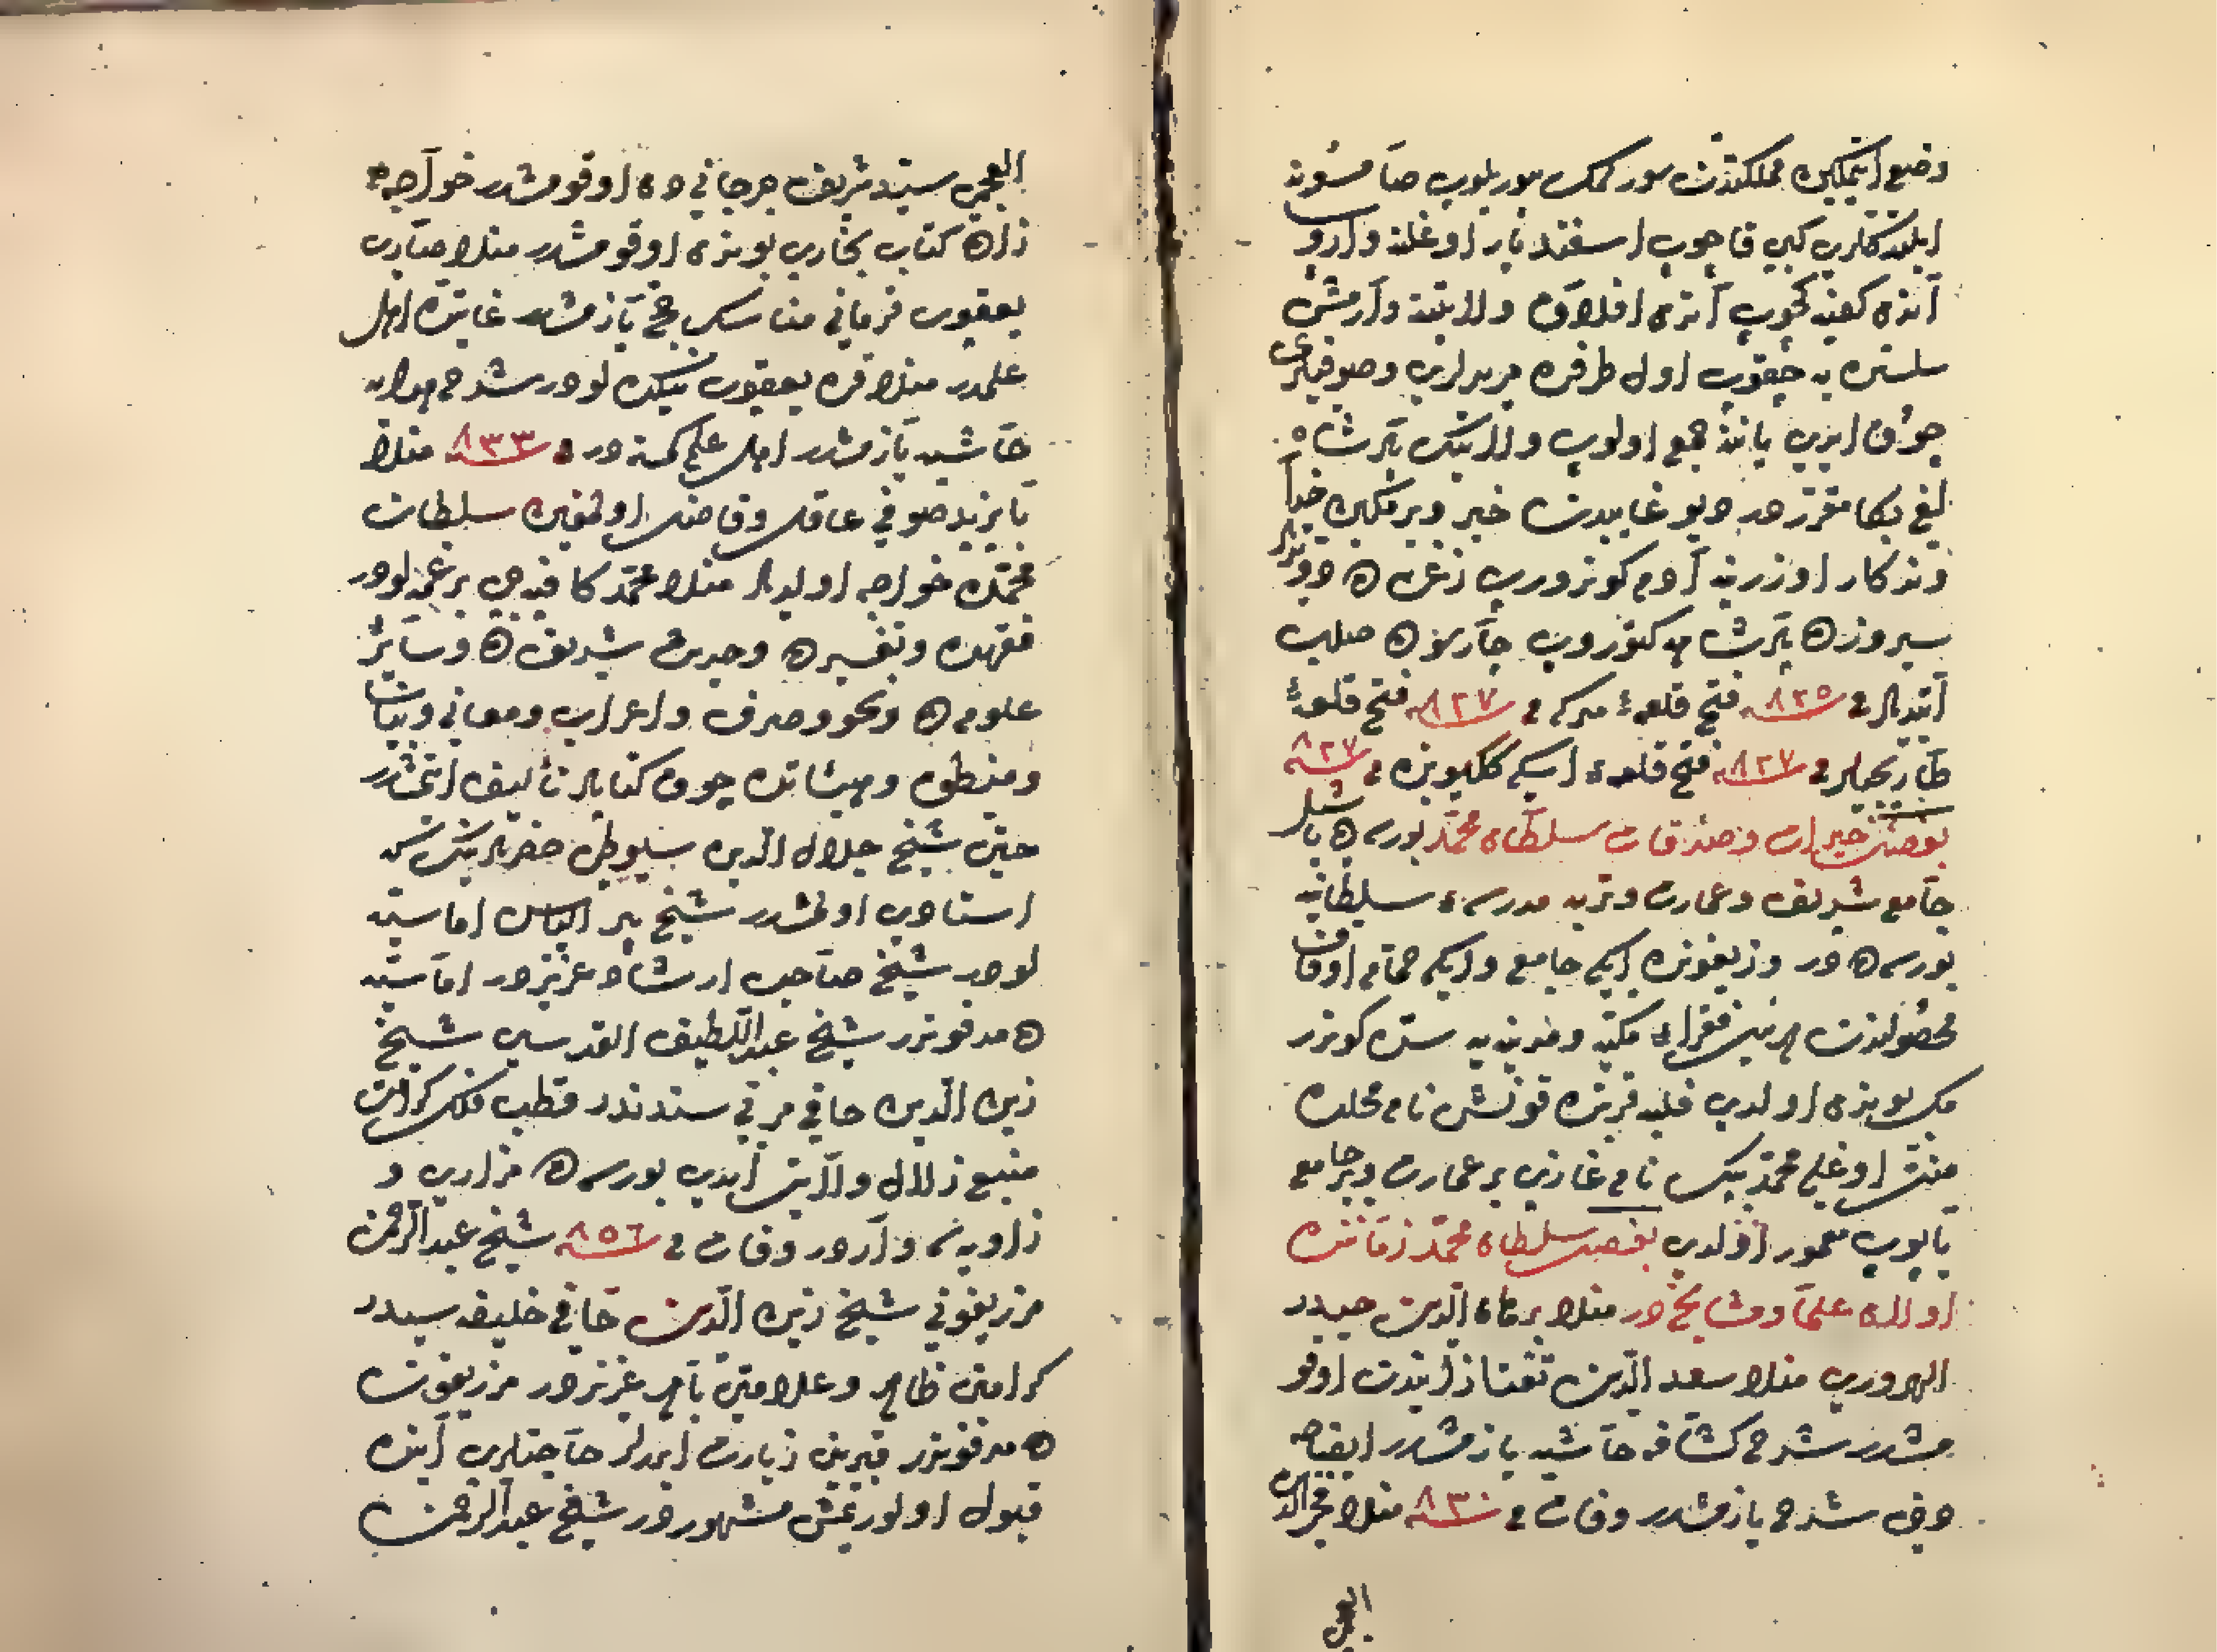 وضع اتمكین مملکتدن سورکمک بیوریلوب صامسونه
ایلندکلری کبی قاچوب اسفندیار اوغلنه واردی
آنده کفه‌یه کچوب آندن افلاق ولایتنه وارمش
سلستره‌یه چقوب اول طرفده مریدلری وصوفیلری
چوق ایدی یاننه جمع اولوب ولایتک
لغی بکا مقرردر دیو خبر ویرمکین خدا
وندکار اوزرینه آدم کوندروب
سیروزه کتوروب چارسوده صلب
آتدیلر فی سنه ٨٢٥ فتح قلعهٔ فی سنه ٨٢٧ فتح قلعهٔ
طارقجیلر فی سنه ٨٢٧ فتح قلعهٔ اسکی ککبویزه فی سنه ٨٢٧
بعض خیرات وصدقات سلطان محمد بورسه‌ده یاشل
جامع شریف وعمارت وتربه مدرسهٔ سلطانیه
بورسه‌ده در ومرزیفونده ایکی جامع وایکی حمام اوقاف
محصولندن حرمین فقراسی مکیه ومدینه‌یه سنده کوندرر
مک بویندن اولدی فلبه قربنده قونش نام محلده
منت اوغلی محمد بیک نام غازی بر عمارت وبر جامع
یاپوب معمور اولدی بعض سلطان محمد زماننده
اولان علما ومشایخدر منلا برهان الدین حیدر
الهروی منلا سعد الدین تفتازانیدن اوقو
مشدر شرح کشافه حاشیه یازمشدر ایضاحه
دخی شرح یازمشدر وفات فی سنه ٨٣٠ منلا فخر الدین
العجمی
العجمی سید شریف جرجانی‌ده اوقومشدر خواجه
زاده کتاب بخاری بویندن اوقومشدر منلا صاری
یعقوب قرمانی مناسک حج یازمشدر غایتده اهل
علمدر منلا قره یعقوب نیکده‌لودر شرح هدایه
حاشیه یازمشدر اهل علم کمسه‌در فی سنه ٨٣٣ منلا
بایزید صوفی عاقل وفاضل اولمغین سلطان
محمده خواجه اولدی منلا محمد کافیه‌جی برغمه‌لودر
فقهده وتفسیرده وحدیث شریفده وسایر
علومده ونحو وصرف واعراب ومعانی وبیان
ومنطق وهیئاتده چوق کتابلر تألیف اتمشدر
حتی شیخ جلال الدین سیوطی حضرتلرینک
استادی اولمشدر شیخ پیر الیاس اماسیه
لودر شیخ صاحب ارشاد عزیزدر اماسیه
ده مدفوندر شیخ عبد اللطیف القدسی شیخ
زین الدین حافی مربی سندندر قطب فلک کرامت
منبع زلال ولایت ایدی بورسه‌ده مزاری و
زاویه‌سی واردر وفات فی سنه ٨٥٦ شیخ عبد الرحمن
مرزیفونی شیخ زین الدین حافی خلیفه‌سیدر
کرامتی ظاهر وعلامتی باهر عزیزدر مرزیفون
ده مدفوندر قبرین زیارت ایدرلر حاجتلری آنده
قبول اولورمش مشهوردر شیخ عبد الرحمن